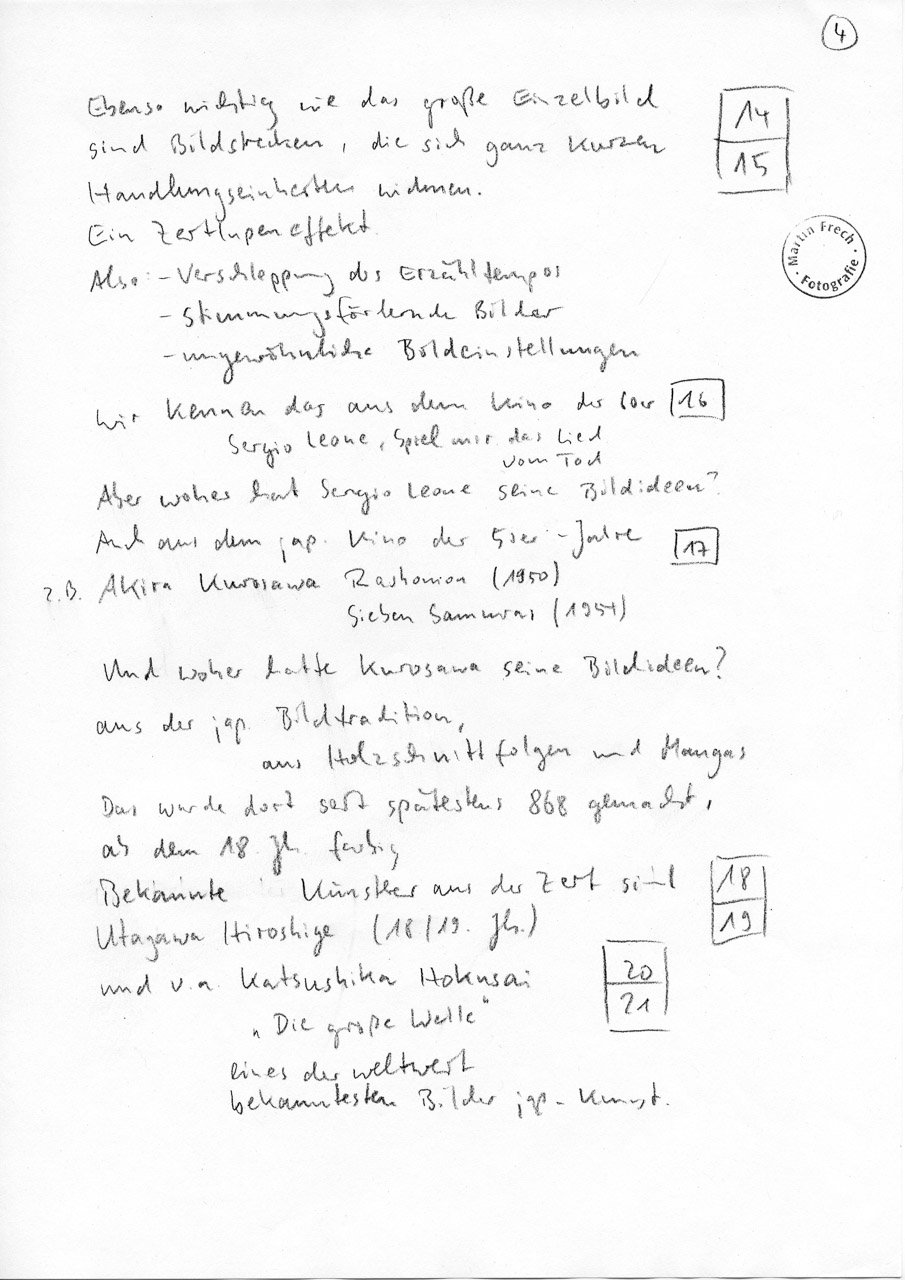 4
Ebenso wichtig wie das große Einzelbild
14
sind Bildstrecken, die sich ganz kurzen
15
Handlungseinheiten widmen.
Ein Zeitlupeneffekt
Martin Frech · Fotografie ·
Also: - Verschleppung des Erzähltempos
- Stimmungsfördernde Bilder
- ungewöhnliche Bildeinstellungen
Wir kennen das aus dem Kino der 60er 16
Sergio Leone, Spiel mir das Lied
vom Tod
Aber woher hat Sergio Leone seine Bildideen?
Auch aus dem jap. Kino der 50er-Jahre 17
z.B. Akira Kurosawa Rashomon (1950)
Sieben Samurai (1954)
Und woher hatte Kurosawa seine Bildideen?
aus der jap. Bildtradition,
aus Holzschnittfolgen und Mangas
Das wurde dort seit spätestens 868 gemacht,
ab dem 18. Jh. farbig
Bekannte Künstler aus der Zeit sind 18
Utagawa Hiroshige (18/19. Jh.) 19
und v.a. Katsushika Hokusai 20
21
„Die große Welle"
eines der weltweit
bekanntesten Bilder jap. Kunst.